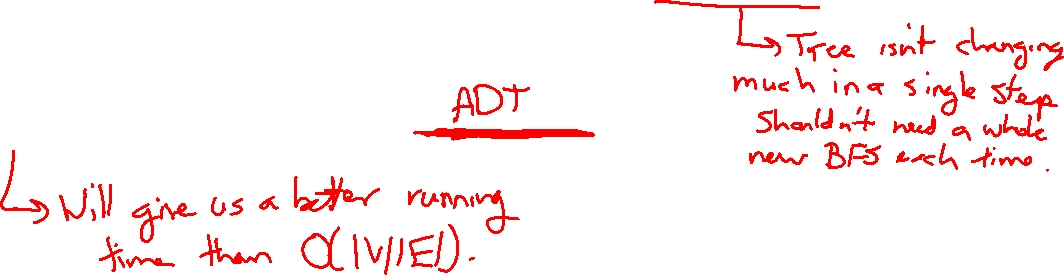 ↳ Tree isn't changing
much in a single step
Shouldn't need a whole
new BFS each time.
ADT
↳ Will give us a better running
time than O(|V||E|).